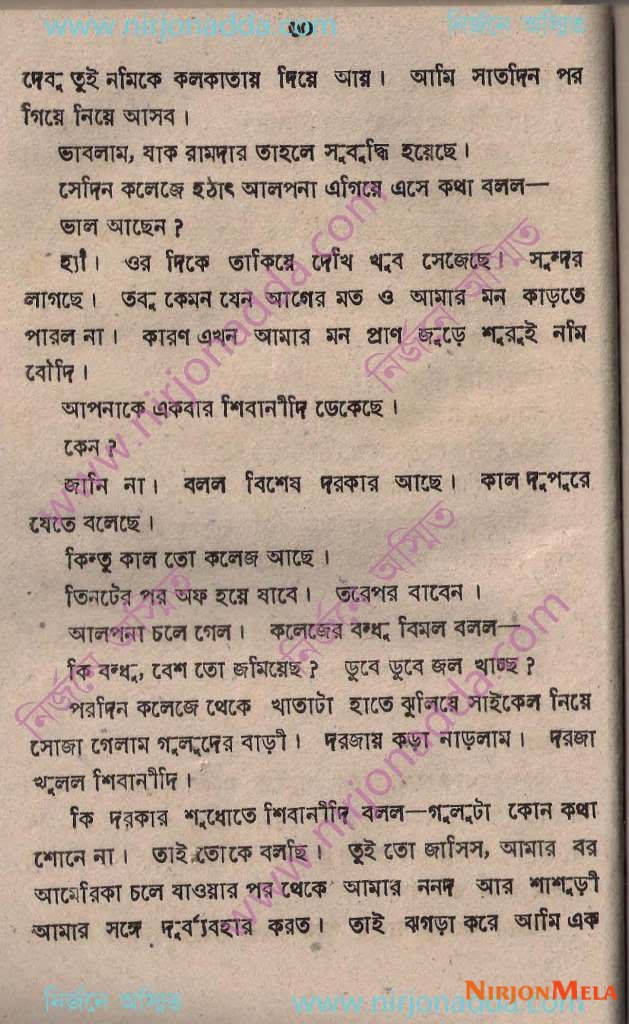 www.nirjonadda.com ৬০ নির্জনে অস্মিত
দেবু তুই নমিকে কলকাতায় দিয়ে আয়। আমি সাতদিন পর
গিয়ে নিয়ে আসব।
ভাবলাম, যাক রামদার তাহলে সুবুদ্ধি হয়েছে।
সেদিন কলেজে হঠাৎ আলপনা এগিয়ে এসে কথা বলল—
ভাল আছেন?
হ্যাঁ। ওর দিকে তাকিয়ে দেখি খুব সেজেছে। সুন্দর
লাগছে। তবু কেমন যেন আগের মত ও আমার মন কাড়তে
পারল না। কারণ এখন আমার মন প্রাণ জুড়ে শুরুই নমি
বৌদি।
আপনাকে একবার শিবানীদি ডেকেছে।
কেন?
জানি না। বলল বিশেষ দরকার আছে। কাল দুপুরে
যেতে বলেছে।
কিন্তু কাল তো কলেজ আছে।
তিনটের পর অফ হয়ে যাবে। তরেপর বাবেন।
আলপনা চলে গেল। কলেজের বন্ধু বিমল বলল—
কি বন্ধু, বেশ তো জমিয়েছ? ডুবে ডুবে জল খাচ্ছ?
পরদিন কলেজ থেকে খাতাটা হাতে ঝুলিয়ে সাইকেল নিয়ে
সোজা গেলাম গুলুদের বাড়ী। দরজায় কড়া নাড়লাম। দরজা
খুলল শিবানীদি।
কি দরকার শুধোতে শিবানীদি বলল—গুলুটা কোন কথা
শোনে না। তাই তোকে বলছি। তুই তো জাসিস, আমার বর
আমেরিকা চলে যাওয়ার পর থেকে আমার ননদ আর শাশুড়ী
আমার সঙ্গে দুর্ব্যবহার করত। তাই ঝগড়া করে আমি এক
NIRJONMELA
নির্জনে অস্মিত www.nirjonadda.com
www.nirjonadda.com
নির্জনে অস্মিত
নির্জনে অস্মিত
নির্জনে অস্মিত
www.nirjonadda.com